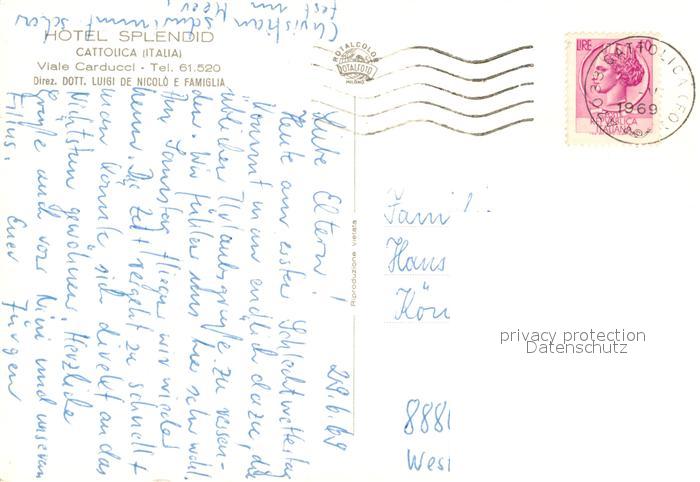 HOTEL SPLENDID
CATTOLICA (ITALIA)
Viale Carducci - Tel. 61.520
Direz. DOTT. LUIGI DE NICOLÒ E FAMIGLIA
ROTALCOLOR
ROTALFOTO
MILANO
LIRE 40
POSTE
REPUBBLICA
ITALIANA
CATTOLICA (FO
1969
29.6.69
Liebe Eltern!
Heute am ersten Schlechtwettertag
kommt man endlich dazu, die
üblichen Urlaubsgrüße zu versen-
den. Wir fühlen uns hier sehr wohl.
Am Samstag fliegen wir wieder
heim. Die Zeit vergeht zu schnell +
man könnte sich direkt an das
Nichtstun gewöhnen. Herzliche
Grüße auch von Nini und unserem
Filius.
Euer Jürgen
Christian schwimmt schon
fest im Meer
Reproduzione vietata
Fam
Hans
Kön
888
Wes
privacy protection
Datenschutz